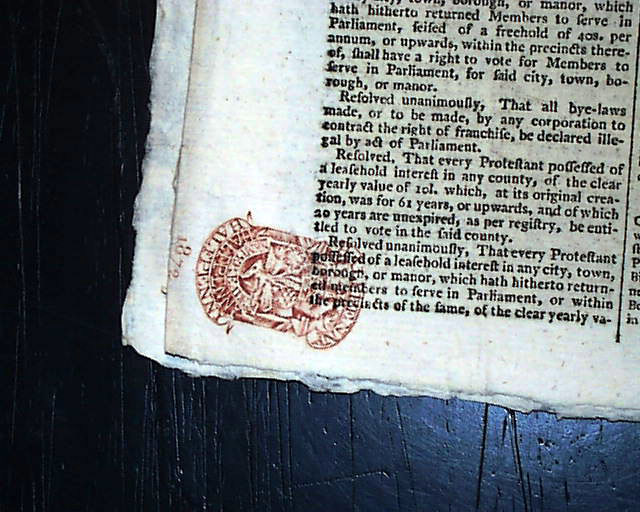 town, borough, or manor, which
hath hitherto returned Members to ſerve in
Parliament, ſeiſed of a freehold of 40s. per
annum, or upwards, within the precincts there-
of, ſhall have a right to vote for Members to
ſerve in Parliament, for ſaid city, town, bo-
rough, or manor.
Reſolved unanimouſly, That all bye-laws
made, or to be made, by any corporation to
contract the right of franchiſe, be declared ille-
gal by act of Parliament.
Reſolved, That every Proteſtant poſſeſſed of
a leaſehold intereſt in any county, of the clear
yearly value of 10l. which, at its original crea-
tion, was for 61 years, or upwards, and of which
20 years are unexpired, as per regiſtry, be enti-
tled to vote in the ſaid county.
Reſolved unanimouſly, That every Proteſtant
poſſeſſed of a leaſehold intereſt in any city, town,
borough, or manor, which hath hitherto return-
ed members to ſerve in Parliament, or within
the precincts of the ſame, of the clear yearly va-